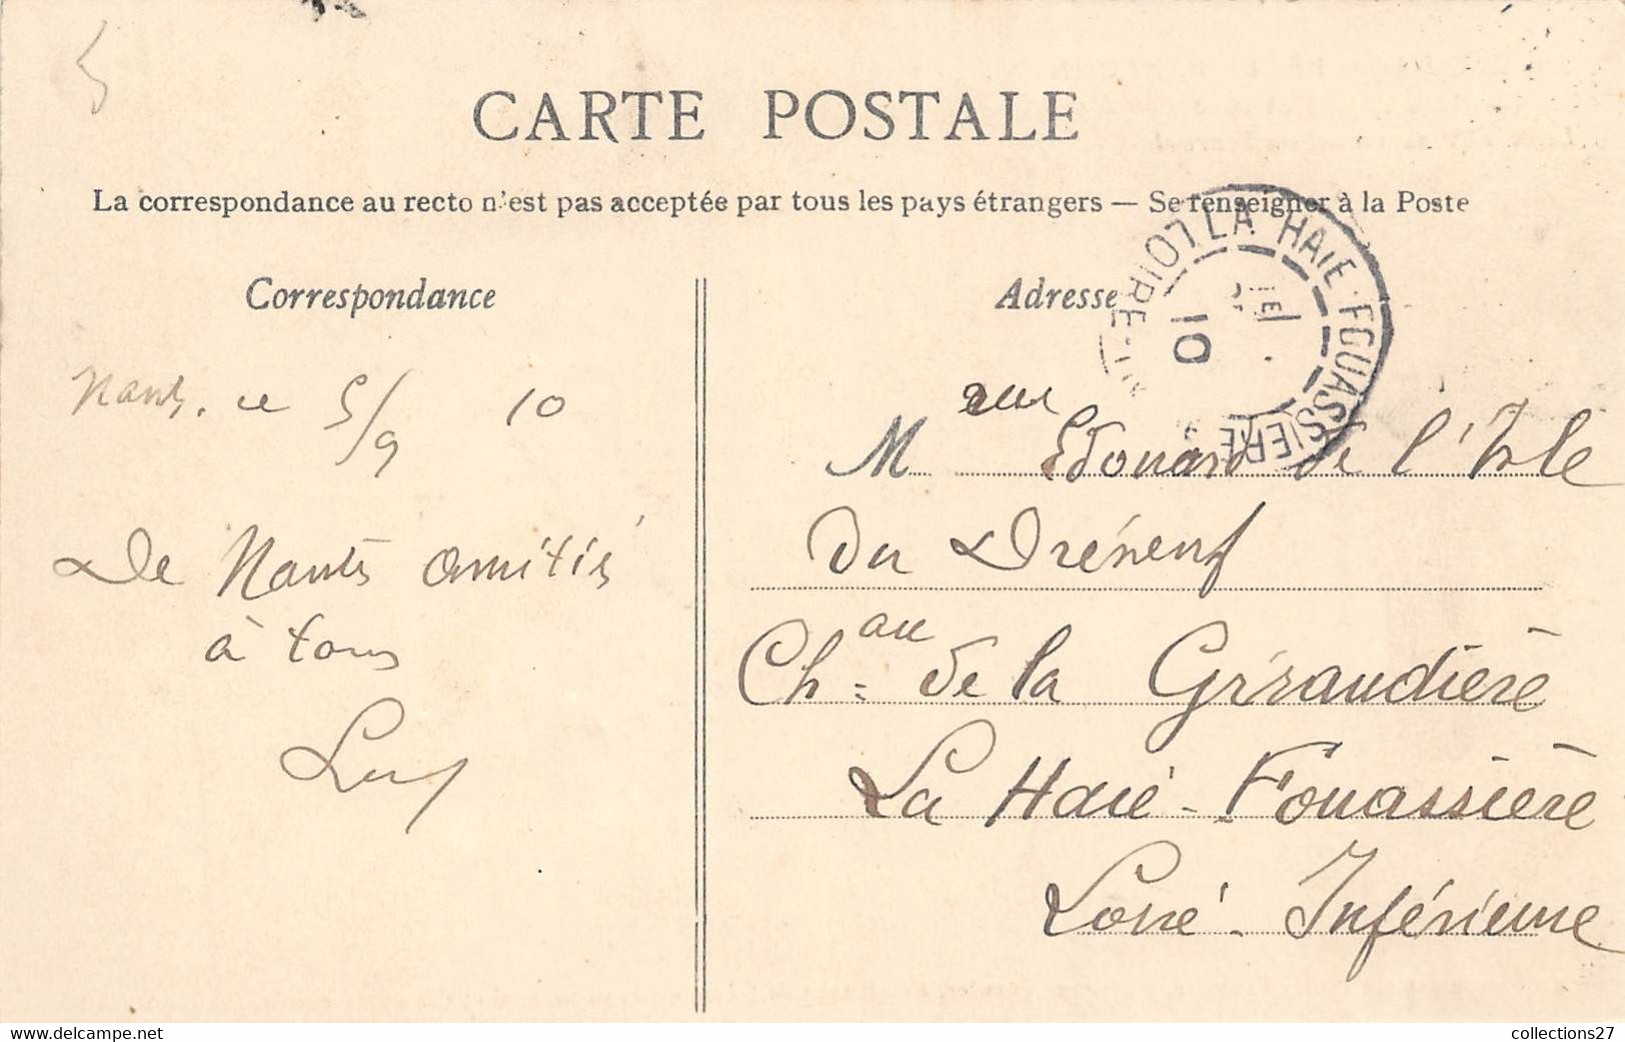 CARTE POSTALE
La correspondance au recto n'est pas acceptée par tous les pays étrangers — Se renseigner à la Poste
Correspondance
Nantes, ce 5/9 10
De Nantes amitiés
à tous
Adresse
LA HAIE FOUASSIERE
LOIRE-INF
10
Mme Edouard de l'Isle
du Dréneuf
Chau de la Giraudière
La Haie-Fouassière
Loire-Inférieure
www.delcampe.net
collections27